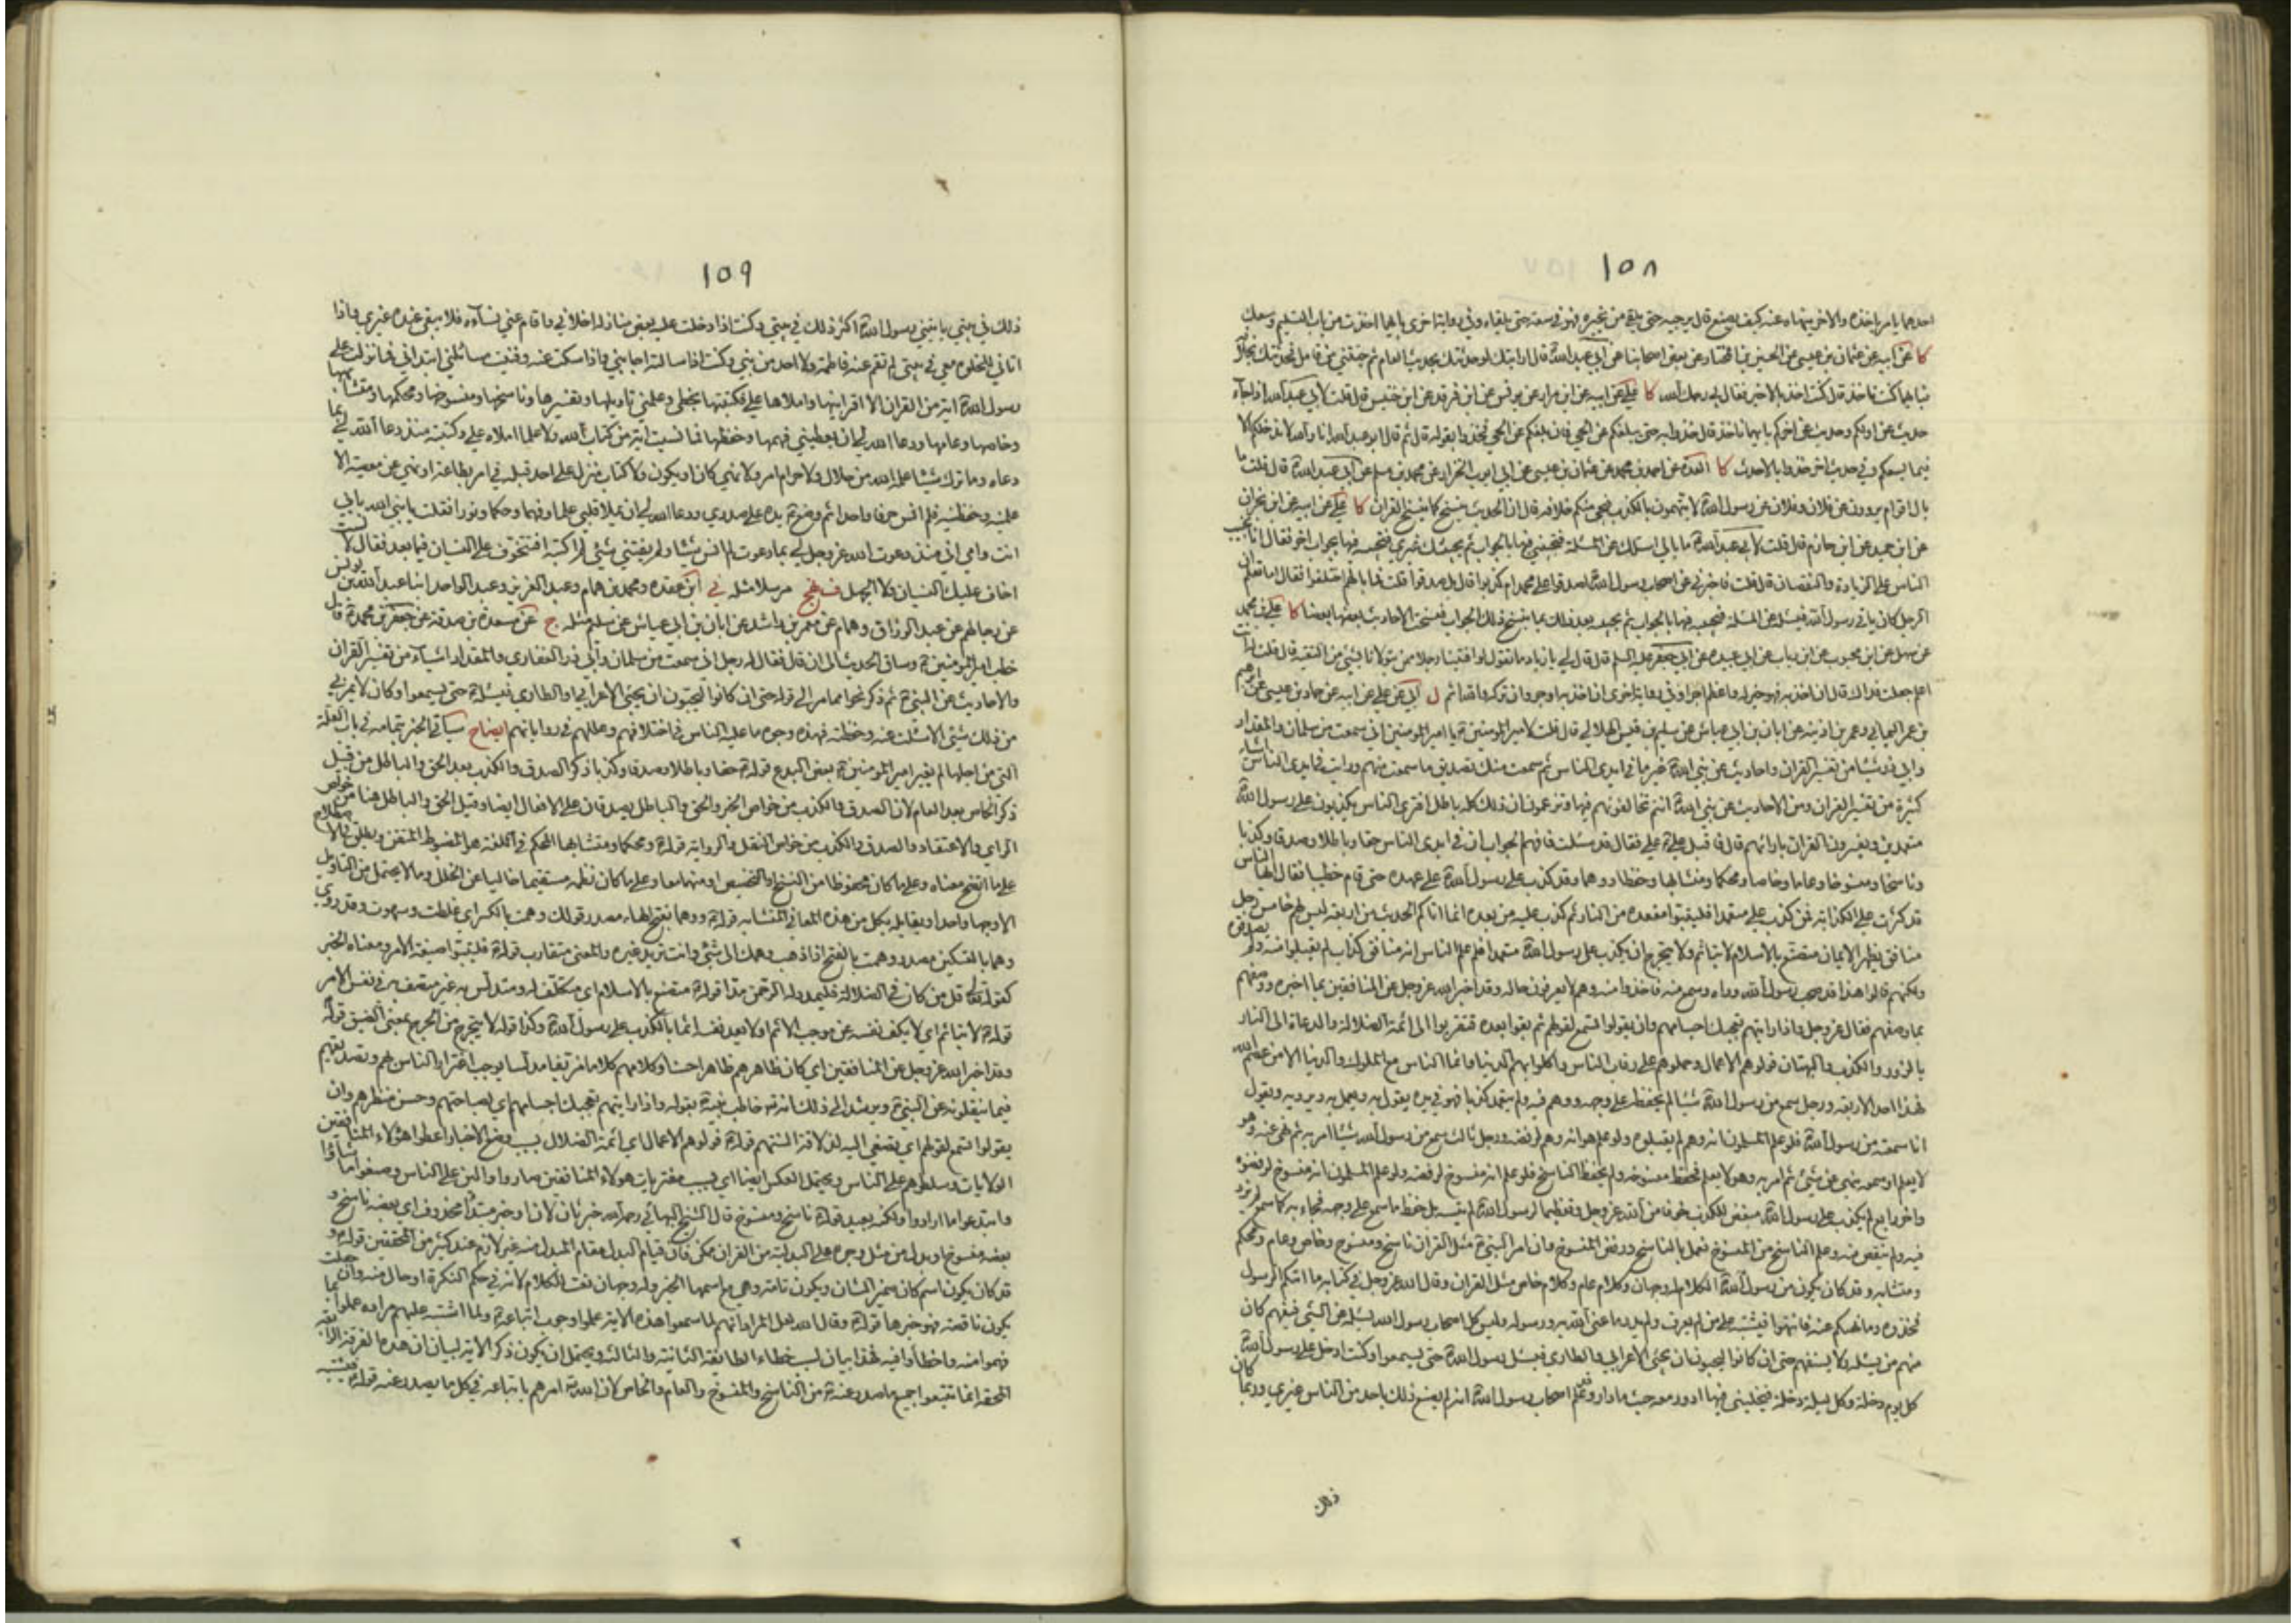 ١٥٨
احدهما يامر باخذه والاخر ينهاه عنه كيف يصنع قال يرجيه حتى يلقى من يخبره فهو في سعة حتى يلقاه وفي رواية اخرى بايهما اخذت من باب التسليم وسعك
كا عن ابيه عن عثمان بن عيسى عن الحسين بن المختار عن بعض اصحابنا عن ابي عبد الله قال ارايتك لو حدثتك بحديث العام ثم جئتني من قابل فحدثتك بخلافه
فبايهما كنت تاخذ قال كنت اخذ بالاخير فقال لي رحمك الله كا علي عن ابيه عن ابن مرار عن يونس عن ابن فرقد عن ابن خنيس قال قلت لابي عبد الله اذا جاء
حديث عن اولكم وحديث عن اخركم بايهما ناخذ قال خذوا به حتى يبلغكم عن الحي فان بلغكم عن الحي فخذوا بقوله قال ثم قال ابو عبد الله انا والله لا ندخلكم الا
فيما يسعكم وفي حديث اخر خذوا بالاحدث كا العدة عن احمد بن محمد عن عثمان بن عيسى عن ابي ايوب الخزاز عن محمد بن مسلم عن ابي عبد الله قال قلت ما
بال اقوام يروون عن فلان وفلان عن رسول الله لا يتهمون بالكذب فيجئ منكم خلافه قال ان الحديث ينسخ كما ينسخ القران كا علي عن ابيه عن ابن نجران
عن ابن حميد عن ابن حازم قال قلت لابي عبد الله ما بالي اسئلك عن المسئلة فتجيبني فيها بالجواب ثم يجيئك غيري فتجيبه فيها بجواب اخر فقال انا نجيب
الناس على الزيادة والنقصان قال قلت فاخبرني عن اصحاب رسول الله صدقوا على محمد ام كذبوا قال بل صدقوا قلت فما بالهم اختلفوا فقال اما تعلم ان
الرجل كان ياتي رسول الله فيسئله عن المسئلة فيجيبه فيها بالجواب ثم يجيبه بعد ذلك بما ينسخ ذلك الجواب فنسخت الاحاديث بعضها بعضا كا علي بن محمد
عن سهل عن ابن محبوب عن ابن رئاب عن ابي عبيدة عن ابي جعفر عليه السلم قال قال لي يا زياد ما تقول لو افتينا رجلا ممن يتولانا بشئ من التقية قال قلت له انت
اعلم جعلت فداك قال ان اخذ به فهو خير له واعظم اجرا وفي رواية اخرى ان اخذ به اوجر وان تركه والله اثم ل ابي عن علي عن ابيه عن حماد بن عيسى عن ابرهيم
بن عمر اليماني وعمر بن اذينة عن ابان بن ابي عياش عن سليم بن قيس الهلالي قال قلت لامير المؤمنين يا امير المؤمنين اني سمعت من سلمان والمقداد
وابي ذر شيئا من تفسير القران واحاديث عن نبي الله غير ما في ايدي الناس ثم سمعت منك تصديق ما سمعت منهم ورايت في ايدي الناس اشياء
كثيرة من تفسير القران ومن الاحاديث عن نبي الله انتم تخالفونهم فيها وتزعمون ان ذلك كله باطل افترى الناس يكذبون على رسول الله
متعمدين ويفسرون القران بارائهم قال فاقبل علي علي فقال قد سئلت فافهم الجواب ان في ايدي الناس حقا وباطلا وصدقا وكذبا
وناسخا ومنسوخا وعاما وخاصا ومحكما ومتشابها وحفظا ووهما وقد كذب على رسول الله على عهده حتى قام خطيبا فقال ايها الناس
قد كثرت علي الكذابة فمن كذب علي متعمدا فليتبوا مقعده من النار ثم كذب عليه من بعده انما اتاكم الحديث من اربعة ليس لهم خامس رجل
منافق يظهر الايمان متصنع بالاسلام لا يتاثم ولا يتحرج ان يكذب على رسول الله متعمدا فلو علم الناس انه منافق كذاب لم يقبلوا منه ولم يصدقوه
ولكنهم قالوا هذا قد صحب رسول الله وراه وسمع منه فاخذوا منه وهم لا يعرفون حاله وقد اخبر الله عز وجل عن المنافقين بما اخبره ووصفهم
بما وصفهم فقال عز وجل واذا رايتهم تعجبك اجسامهم وان يقولوا تسمع لقولهم ثم بقوا بعده فتقربوا الى ائمة الضلالة والدعاة الى النار
بالزور والكذب والبهتان فولوهم الاعمال وحملوهم على رقاب الناس واكلوا بهم الدنيا وانما الناس مع الملوك والدنيا الا من عصم الله
فهذا احد الاربعة ورجل سمع من رسول الله شيئا لم يحفظه على وجهه ووهم فيه ولم يتعمد كذبا فهو في يده يقول به ويعمل به ويرويه ويقول
انا سمعته من رسول الله فلو علم المسلمون انه وهم لم يقبلوه ولو علم هو انه وهم لرفضه ورجل ثالث سمع من رسول الله شيئا امر به ثم نهى عنه وهو
لا يعلم او سمعه نهى عن شئ ثم امر به وهو لا يعلم فحفظ منسوخه ولم يحفظ الناسخ فلو علم انه منسوخ لرفضه ولو علم المسلمون انه منسوخ لرفضوه
واخر رابع لم يكذب على رسول الله مبغض للكذب خوفا من الله عز وجل وتعظيما لرسول الله لم ينسه بل حفظ ما سمع على وجهه فجاء به كما سمع لم يزد
فيه ولم ينقص منه وعلم الناسخ من المنسوخ فعمل بالناسخ ورفض المنسوخ وان امر النبي مثل القران ناسخ ومنسوخ وخاص وعام ومحكم
ومتشابه وقد كان يكون من رسول الله الكلام له وجهان وكلام عام وكلام خاص مثل القران وقال الله عز وجل في كتابه ما اتيكم الرسول
فخذوه وما نهيكم عنه فانتهوا فيشتبه على من لم يعرف ولم يدر ما عنى الله به ورسوله وليس كل اصحاب رسول الله يسئله عن الشئ فيفهم كان
منهم من يسئله ولا يستفهم حتى ان كانوا ليحبون ان يجئ الاعرابي والطاري فيسئل رسول الله حتى يسمعوا وكنت ادخل على رسول الله
كل يوم دخلة وكل ليلة دخلة فيخليني فيها ادور معه حيث ما دار وقد علم اصحاب رسول الله انه لم يصنع ذلك باحد من الناس غيري وربما كان
ذلك
١٥٩
ذلك في بيتي ياتيني رسول الله اكثر ذلك في بيتي وكنت اذا دخلت عليه بعض منازله اخلاني واقام عني نسآءه فلا يبقى عنده غيري واذا
اتاني للخلوة معي في بيتي لم تقم عنه فاطمة ولا احد من بني وكنت اذا سالته اجابني واذا سكت عنه وفنيت مسائلي ابتداني فما نزلت على
رسول الله اية من القران الا اقرانيها واملاها علي فكتبتها بخطي وعلمني تاويلها وتفسيرها وناسخها ومنسوخها ومحكمها ومتشابهها
وخاصها وعامها ودعا الله لي ان يعطيني فهمها وحفظها فما نسيت اية من كتاب الله ولا علما املاه علي وكتبته منذ دعا الله لي بما
دعاه وما ترك شيئا علمه الله من حلال ولا حرام امر ولا نهي كان او يكون ولا كتاب منزل على احد قبله في امر بطاعة او نهي عن معصية الا
علمنيه وحفظنيه فلم انس حرفا واحدا ثم وضع يده على صدري ودعا الله لي ان يملا قلبي علما وفهما وحكما ونورا فقلت يا نبي الله بابي
انت وامي اني منذ دعوت الله عز وجل لي بما دعوت لم انس شيئا ولم يفتني شئ لم اكتبه افتتخوف علي النسيان فيما بعد فقال لا لست
اخاف عليك النسيان ولا الجهل ف نهج مرسلا مثله ني ابن عقدة ومحمد بن همام وعبد العزيز وعبد الواحد ابنا عبد الله بن يونس
عن رجالهم عن عبد الرزاق وهمام عن معمر بن راشد عن ابان بن ابي عياش عن سليم مثله ج عن مسعدة بن صدقة عن جعفر بن محمد قال
خطب امير المؤمنين وساق الحديث الى ان قال فقال له رجل اني سمعت من سلمان وابي ذر الغفاري والمقداد اشياء من تفسير القران
والاحاديث عن النبي ثم ذكر نحوا مما مر الى قوله حتى ان كانوا ليحبون ان يجئ الاعرابي والطاري فيسئله حتى يسمعوا وكان لا يمر بي
من ذلك شئ الا سئلت عنه وحفظته فهذه وجوه ما عليه الناس في اختلافهم وعللهم في رواياتهم ايضاح سياتي الخبر بتمامه في باب العلة
التي من اجلها لم يغير امير المؤمنين بعض البدع قوله حقا وباطلا وصدقا وكذبا ذكر الصدق والكذب بعد الحق والباطل من قبيل
ذكر الخاص بعد العام لان الصدق والكذب من خواص الخبر والحق والباطل يصدقان على الافعال ايضا وقيل الحق والباطل هنا من خواص
الراي والاعتقاد والصدق والكذب من خواص النقل والرواية قوله ومحكما ومتشابها المحكم في اللغة هو المضبوط المتقن ويطلق في الاصطلاح
على ما اتضح معناه وعلى ما كان محفوظا من النسخ او التخصيص او منهما معا وعلى ما كان نظمه مستقيما خاليا عن الخلل وما لا يحتمل من التاويل
الا وجها واحدا ويقابله بكل من هذه المعاني المتشابه قوله ووهما بفتح الهاء مصدر قولك وهمت بالكسر اي غلطت وسهوت وقد روي
وهما بالتسكين مصدر وهمت بالفتح اذا ذهب وهمك الى شئ وانت تريد غيره والمعنى متقارب قوله فليتبوا صيغة الامر ومعناه الخبر
كقوله تعالى قل من كان في الضلالة فليمدد له الرحمن مدا قوله متصنع بالاسلام اي متكلف له ومتدلس به غير متصف به في نفس الامر
قوله لا يتاثم اي لا يكف نفسه عن موجب الاثم او لا يعد نفسه اثما بالكذب على رسول الله وكذا قوله لا يتحرج من الحرج بمعنى الضيق قوله
وقد اخبر الله عز وجل عن المنافقين اي كان ظاهرهم ظاهرا حسنا وكلامهم كلاما مزيفا مدلسا يوجب اغترار الناس بهم وتصديقهم
فيما ينقلونه عن النبي ويرشد الى ذلك انه خاطب نبيه بقوله واذا رايتهم تعجبك اجسامهم اي لصباحتهم وحسن منظرهم وان
يقولوا تسمع لقولهم اي تصغي اليه لذلاقة السنتهم قوله فولوهم الاعمال اي ائمة الضلال بسبب وضع الاخبار اعطوا هؤلاء المنافقين
الولايات وسلطوهم على الناس ويحتمل العكس ايضا اي بسبب مفتريات هؤلاء المنافقين صاروا والين على الناس وصنعوا ما شاؤا
وابتدعوا ما ارادوا ولكنه بعيد قوله ناسخ ومنسوخ قال الشيخ البهائي رحمه الله خبر ثان لان او خبر مبتدأ محذوف اي بعضه ناسخ و
بعضه منسوخ او بدل من مثل وجره على البدلية من القران ممكن فان قيام البدل مقام المبدل منه غير لازم عند كثير من المحققين قوله و
قد كان يكون اسم كان ضمير الشان ويكون تامة وهي مع اسمها الخبر وله وجهان نعت للكلام لانه في حكم النكرة او حال منه وان جعلت
يكون ناقصة فهو خبرها قوله وقال الله لعل المراد انهم لما سمعوا هذه الاية علموا وجوب اتباعه ولما اشتبه عليهم مراده عملوا بما
فهموا منه واخطأوا فيه فهذا بيان لسبب خطاء الطائفة الثانية والثالثة ويحتمل ان يكون ذكر الاية لبيان ان هذه الفرقة الرابعة
المحقة انما تتبعوا جميع ما صدر عنه من الناسخ والمنسوخ والعام والخاص لان الله امرهم باتباعه في كل ما يصدر عنه قوله فيشتبه